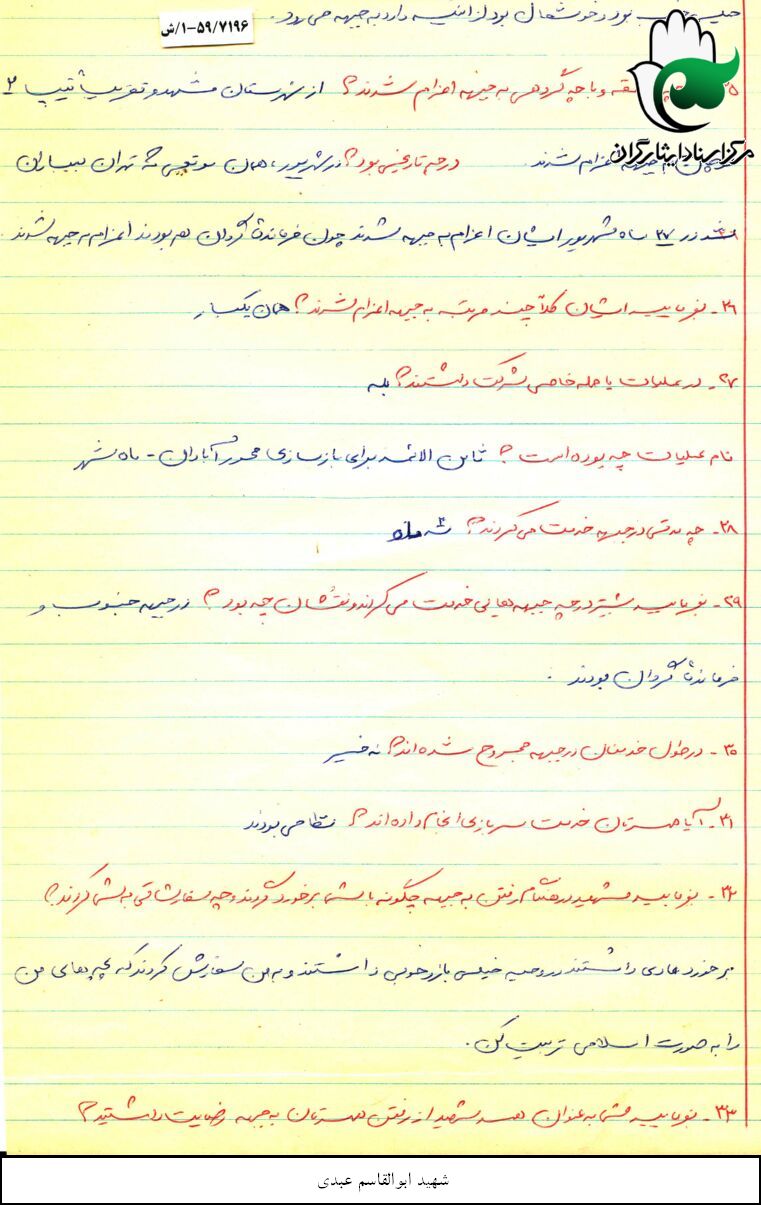 خیلی خوب بود و خوشحال بود از اینکه دارد به جبهه می رود.
۵۹/۷۱۹۶-۱/ش
مرکز اسناد ایثارگران
۲۵ و با چه گروهی به جبهه اعزام شدند؟ از شهرستان مشهد و تقریبا تیپ ۲
به جبهه اعزام شدند. در چه تاریخی بود؟ در شهریور، همان موقعی که تهران بمباران
شد در ۲۷ ماه شهریور ایشان اعزام به جبهه شدند چون فرمانده گردان هم بودند اعزام به جبهه شدند
۲۶- بفرمایید ایشان کلاً چند مرتبه به جبهه اعزام شدند؟ همان یکبار
۲۷- در عملیات یا حمله خاصی شرکت داشتند؟ بله
نام عملیات چه بوده است؟ ثامن الائمه برای بازسازی محور آبادان - ماهشهر
۲۸- چه مدتی در جبهه خدمت می کردند؟ سه ماه
۲۹- بفرمایید بیشتر در چه جبهه هایی خدمت می کردند و نقششان چه بود؟ در جبهه جنوب و
فرمانده گردان بودند.
۳۰- در طول خدمتتان در جبهه مجروح شده اند؟ نه خیر
۳۱- آیا همسرتان خدمت سربازی انجام داده اند؟ نظامی بودند
۳۲- بفرمایید شهید در هنگام رفتن به جبهه چگونه با شما برخورد کردند و چه سفارشاتی به شما کردند؟
برخورد عادی داشتند و روحیه خیلی باز و خوبی داشتند و به من سفارش کردند که بچه های من
را به صورت اسلامی تربیت کن.
۳۳- بفرمایید شما به عنوان همسر شهید از رفتن همسرتان به جبهه رضایت داشتید؟
شهید ابوالقاسم عبدی